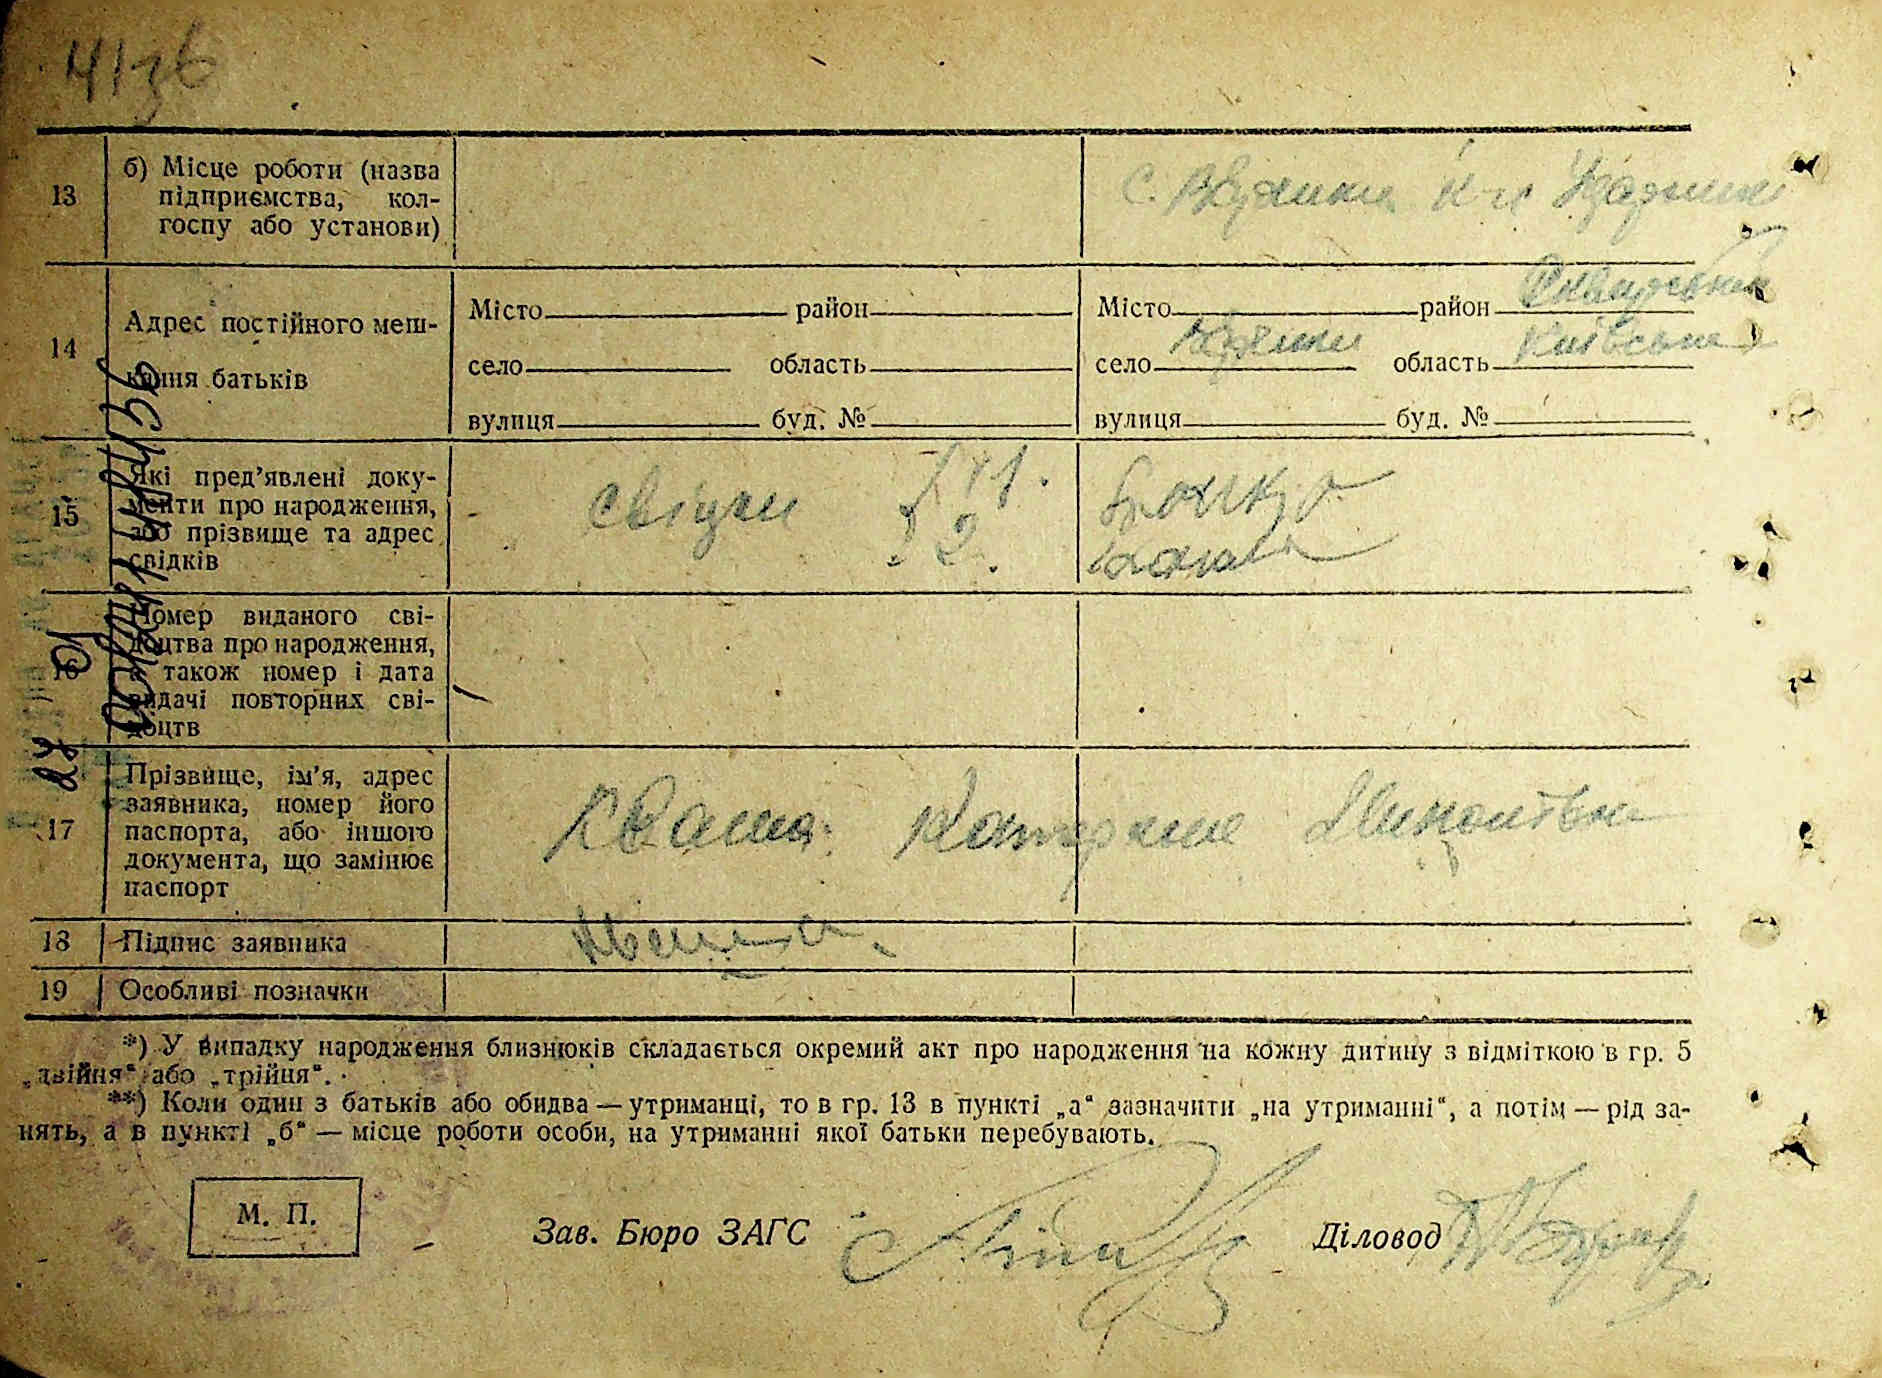 13
б) Місце роботи (назва
підприємства, кол-
госпу або установи)
с. к-п Ударник
14
Адрес постійного меш-
кання батьків
Місто район
село область
вулиця буд. №
Місто район Сквирський
село область Київська
вулиця буд. №
15
Які пред'явлені доку-
менти про народження,
або прізвище та адрес
свідків
свідки 1.
2.
16
Номер виданого сві-
доцтва про народження,
а також номер і дата
видачі повторних сві-
доцтв
17
Прізвище, ім'я, адрес
заявника, номер його
паспорта, або іншого
документа, що замінює
паспорт
Кваша Катерина
18
Підпис заявника
Кваша
19
Особливі позначки
*) У випадку народження близнюків складається окремий акт про народження на кожну дитину з відміткою в гр. 5
„двійня" або „трійня".
**) Коли один з батьків або обидва — утриманці, то в гр. 13 в пункті „а" зазначити „на утриманні", а потім — рід за-
нять, а в пункті „б" — місце роботи особи, на утриманні якої батьки перебувають.
М. П.
Зав. Бюро ЗАГС
Діловод